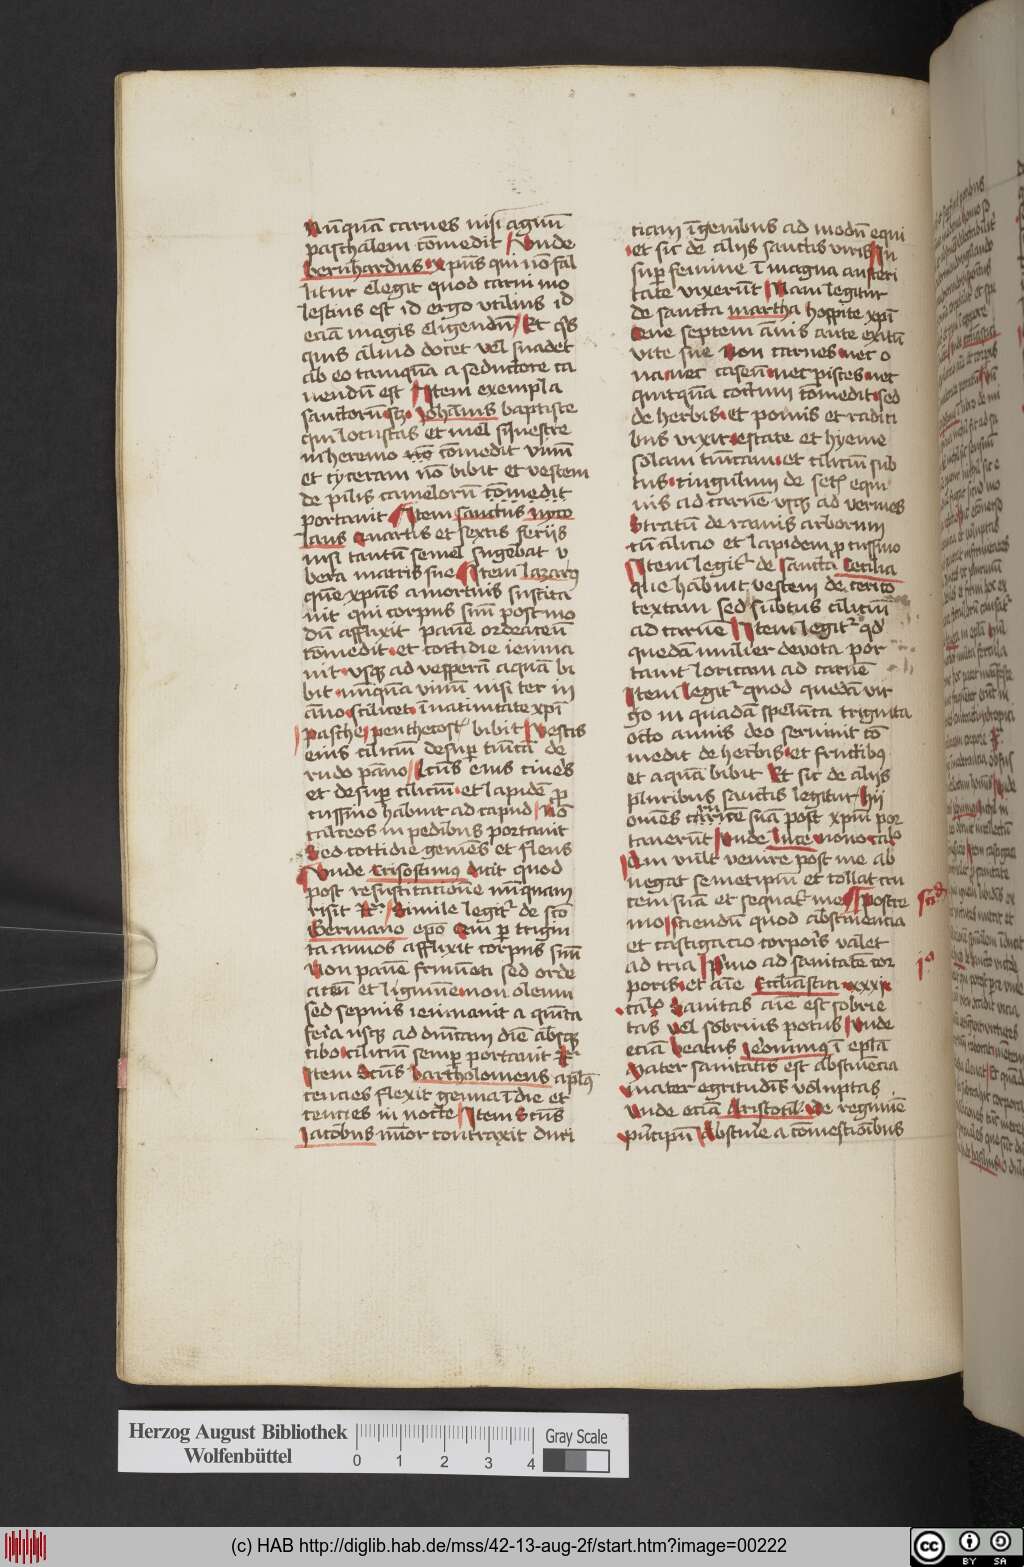 Nūquā carnes nisi agnū
paschalem cōmedit Unde
bernhardus xp̄us qui nō fal
litur elegit quod carni mo
lestius est id ergo utilius id
eciā magis eligendū Et q̄s
quis aliud docet vel suadet
ab eo tamquā a seductore ca
uendū est Item exempla
sanctorū sc̄z Johānis baptiste
qui locustas et mel siluestre
in heremo cōmedit vinū
et ciceram nō bibit et vestem
de pilis camelorū cōmedit
portauit Item sanctus nyco
laus Quartis et sextis ferijs
nisi tantū semel sugebat v
bera matris sue Item lazarꝰ
quē xp̄us a mortuis suscita
uit qui corpus suū postmo
dū afflixit panē ordeaceū
cōmedit et cottidie ieiuna
uit vsqꝫ ad vesperā aquā bi
bit nūquā vinū nisi ter in
āno scilicet ī natiuitate xp̄i
pasche penthecost̄ bibit Vestis
eius ciliciū desup̄ tunicā de
rudo pāno Lectꝰ eius cineris
et desup̄ ciliciū et lapidē ꝓ
cussino habuit ad capud Nō
calceos in pedibus portauit
Sed cottidie gemēs et flens
Unde Crisostimꝰ dicit quod
post resuscitationē nūquam
risit Rͫ Simile legit̄ de sc̄o
Germano ep̄o Qui ꝑ trigin
ta annos afflixit corpus suū
Non panē frumēti sed orde
aceū et legumē non oleum
sed sepius ieiunauit a quīta
feria usqꝫ ad dn̄icam diē absqꝫ
cibo ciliciū semp̄ portauit
Item Sc̄us bartholomeus ap̄lꝰ
cencies flexit genua ī die et
cencies in nocte Item Sc̄us
Jacobus minor contraxit duri
ciam ī genibus ad modū equi
et sic de alijs sanctis viris In
sup̄ femine ī magna austeri
tate vixerūt Nam legitur
de sancta martha hospite xp̄i
Que septem ānis ante exitū
vite sue Non carnes nec o
ua nec caseū nec pisces nec
quitquā coctum cōmedit sed
de herbis et pomis et radici
bus vixit estate et hyeme
solam tunicam et ciliciū sub
tus cingulum de set̄ equi
nis ad carnē vsqꝫ ad vermes
Stratū de ramis arborum
cū cilicio et lapidem ꝓ cussino
Item legit̄ de Sancta Cecilia
que habuit vestem de cerico
textam sed subtus ciliciū
ad carnē Item legit̄ qd̄
quedā mulier deuota por
tauit loricam ad carnē
Item legit̄ quod quedā vir
go in quadā spelunca triginta
octo annis deo seruiuit cō
medit de herbis et fructibꝰ
et aquā bibit Et sic de alijs
pluribus sanctis legitur Hij
omēs crucē suā post xp̄m por
tauerūt Unde luce nono cal̄
Qui vult venire post me ab
negat semetip̄m et tollat cru
cem suā et sequat̄ me Postre
mo Sciendū quod abstinencia
et castigacio corporis valet
ad tria Primo ad sanitatē cor
poris et aīe Eccliastici xxxi
cal̄ Sanitas aīe est sobrie
tas vel sobrius potus Unde
eciā beatus Jeronimꝰ ī epl̄a
Pater sanitatis est abstinēcia
mater egritudīs voluptas
Unde eciā Aristotil̄ de regimīe
principū Abstine a cōmestionibus
Herzog August Bibliothek
Wolfenbüttel
0 1 2 3 4
Gray Scale
(c) HAB http://diglib.hab.de/mss/42-13-aug-2f/start.htm?image=00222
cc BY SA